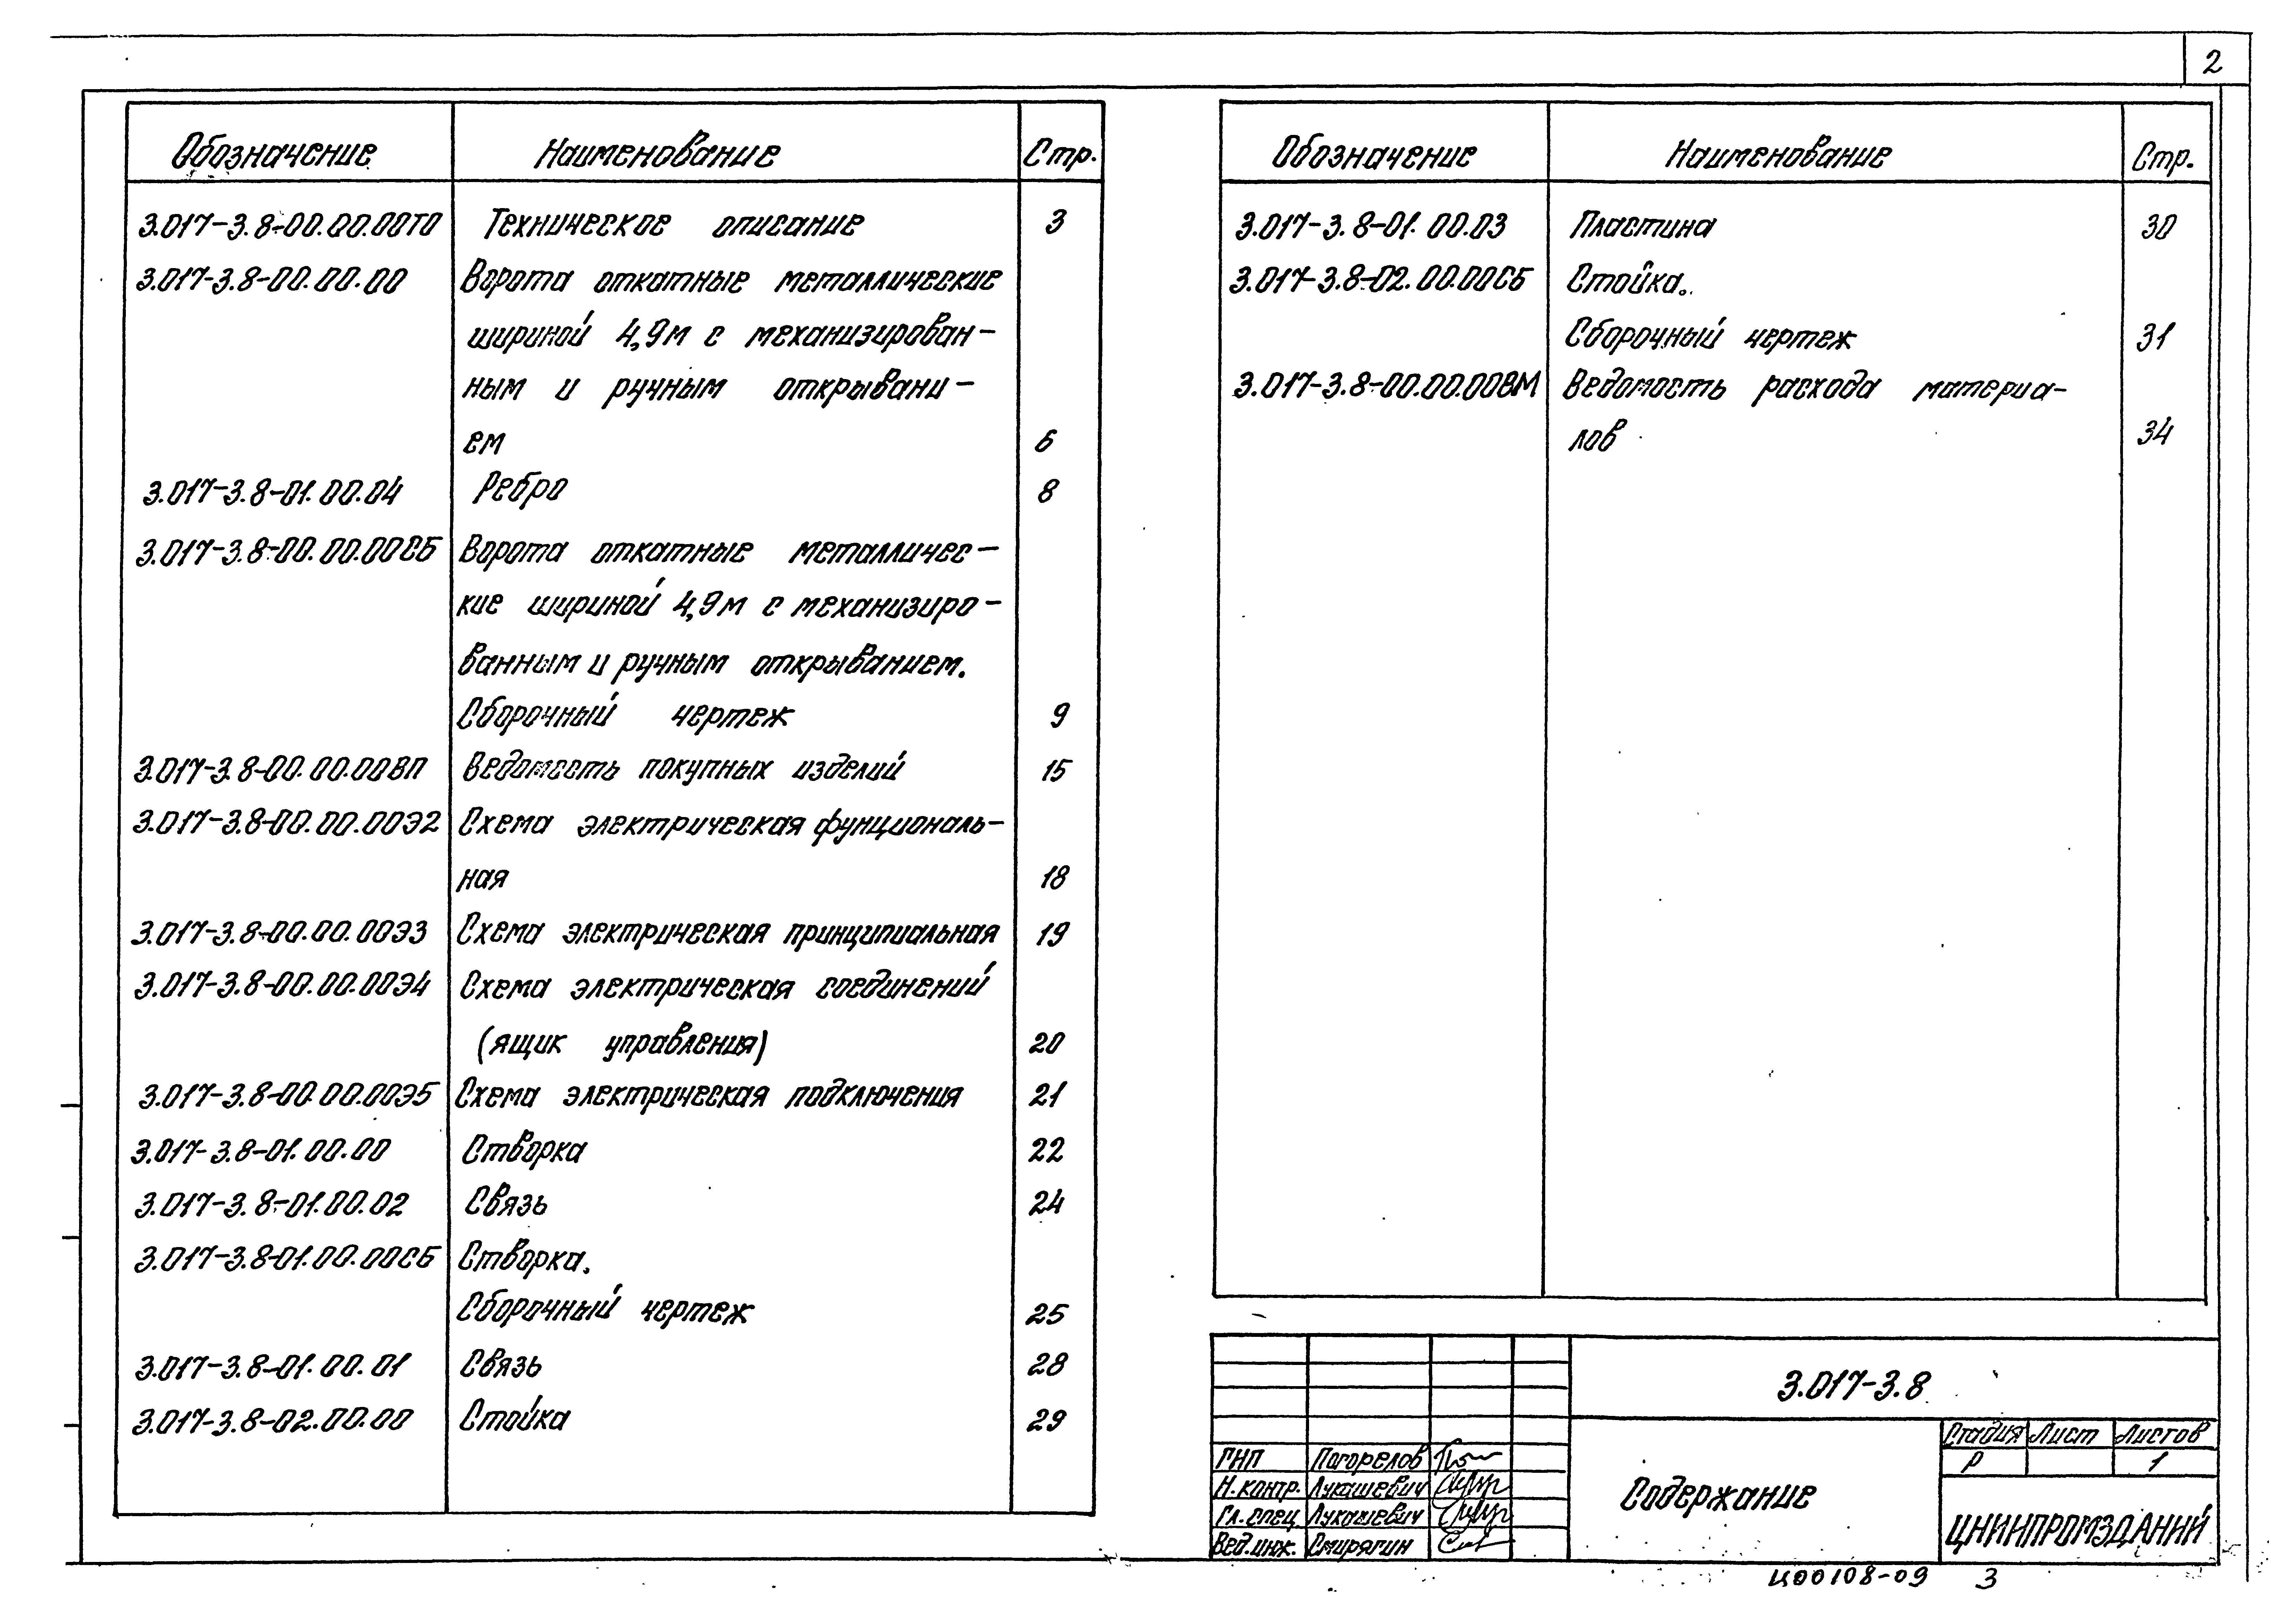 2
Обозначение Наименование Стр.
3.017-3.8-00.00.00ТО Техническое описание 3
3.017-3.8-00.00.00 Ворота откатные металлические
шириной 4,9м с механизирован-
ным и ручным открывани-
ем 6
3.017-3.8-01.00.04 Ребро 8
3.017-3.8-00.00.00СБ Ворота откатные металличес-
кие шириной 4,9м с механизиро-
ванным и ручным открыванием.
Сборочный чертеж 9
3.017-3.8-00.00.00ВП Ведомость покупных изделий 15
3.017-3.8-00.00.00Э2 Схема электрическая фунциональ-
ная 18
3.017-3.8-00.00.00Э3 Схема электрическая принципиальная 19
3.017-3.8-00.00.00Э4 Схема электрическая соединений
(ящик управления) 20
3.017-3.8-00.00.00Э5 Схема электрическая подключения 21
3.017-3.8-01.00.00 Створка 22
3.017-3.8-01.00.02 Связь 24
3.017-3.8-01.00.00СБ Створка.
Сборочный чертеж 25
3.017-3.8-01.00.01 Связь 28
3.017-3.8-02.00.00 Стойка 29
Обозначение Наименование Стр.
3.017-3.8-01.00.03 Пластина 30
3.017-3.8-02.00.00СБ Стойка.
Сборочный чертеж 31
3.017-3.8-00.00.00ВМ Ведомость расхода материа-
лов 34
3.017-3.8
ГИП Погорелов
Н.контр. Лукашевич
Гл.спец Лукашевич
Вед.инж. Смирягин
Содержание
Стадия Лист Листов
Р 1
ЦНИИПРОМЗДАНИЙ
Ц00108-09 3